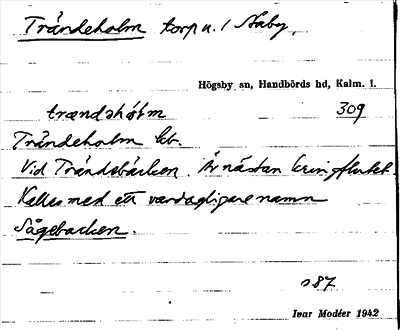 Trändeholm torp u. / Staby,
Högsby sn, Handbörds hd, Kalm. l.
trændəhòlm 309
Trändeholm lb.
Vid Trändebäcken. Är nästan kringflutet.
Kallas med ett vardagligare namn
Sågebacken.
s 87
Ivar Modéer 1942